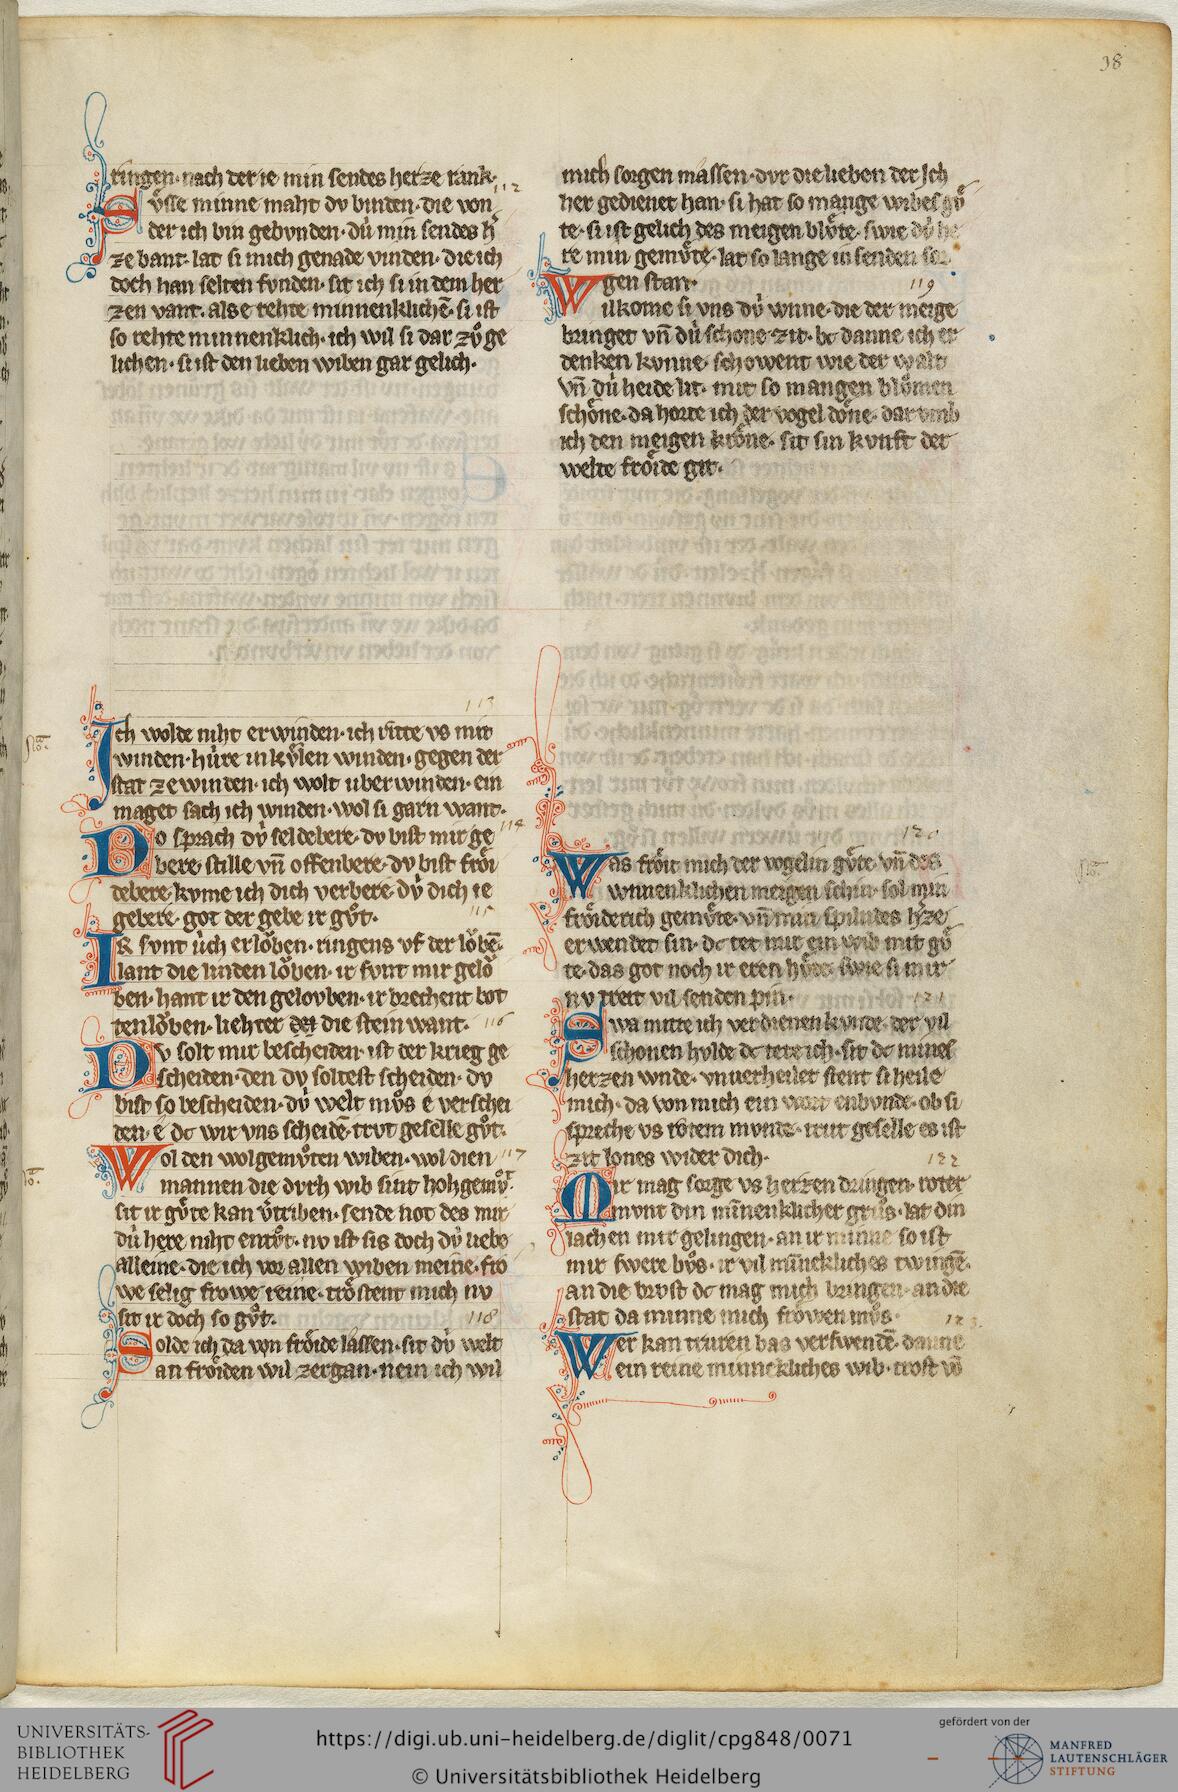 38
ringen· nach der ie min sendes herze rank·
112
Svͤsse minne maht dv binden· die von
der ich bin gebvnden· dv́ min sendes h̾
ze bant· lat si mich genade vinden· die ich
doch han selten fvnden· sit ich si in dem her
zen vant· als e rehte minnenklichē· si ist
so rehte minnenklich· ich wil si dar zvͦ ge
lichen· si ist den lieben wiben gar gelich·
113
Ich wolde niht erwinden· ich ritte vs mit
winden· hv́re in kvͤlen winden· gegen der
stat ze winden· ich wolt vberwinden· ein
maget sach ich winden· wol si garn want·
114
Do sprach dv́ seldebere· dv bist mir ge
bere· stille vn̄ offenbere· dv bist froͤi
debere· kvme ich dich verbere· dv́ dich ie
gebere· got der gebe ir gvͦt·
115
Ir svnt v́ch erloͮben· ringens vf der loͮbē·
lant die linden loͮben· ir svnt mir geloͮ
ben· hant ir den gelovben· ir brechent bot
tenloͮben· liehter der die steinwant·
116
Dv solt mir bescheiden· ist der krieg ge
scheiden· den dv soltest scheiden· dv
bist so bescheiden· dv́ welt mvͦs e verschei
den· e dc wir vns scheidē· trvt geselle gvͦt·
117
Wol den wolgemvͦten wiben· wol dien
mannen die dvrh wib sint hohgemvͦt·
sit ir gvͤte kan v̾triben· sende not des mir
dv́ here niht entvͦt· nv ist sis doch dv́ liebe
alleine· die ich vor allen wiben meine· fro
we selig frowe reine· troͤstent mich nv
sit ir doch so gvͦt·
118
Solde ich da von froͤide lassen· sit dv́ welt
an froͤiden wil zergan· nein ich wil
mich sorgen massen· dvr die lieben der ich
her gedienet han· si hat so mange wibes gvͤ
te· si ist gelich des meigen blvͤte· swie dv́ he
re min gemvͤte· lat so lange in senden sor
gen stan·
119
Wilkome si vns dv́ wnne· die der meige
bringet vn̄ dv́ schone zit· bc danne ich er
denken kvnne· schowent wie der walt
vn̄ dv́ heide lit· mit so mangen blvͦmen
schoͤne· da horte ich der vogel doͤne· dar vmb
ich den meigen kroͤne· sit sin kvnft der
welte froͤide git·
120
Was froͤit mich der vogelin gvͤte· vn̄ des
wnnenklichen meigen schin· sol min
froͤiderich gemvͤte· vn̄ min spilndes h̾ze·
erwendet sin· dc tet mir ein wib mit gvͤ
te· das got noch ir eren hvͤte· swie si mir
nv treit vil senden pin·
121
Swa mitte ich verdienen kvnde· der vil
schonen hvlde dc tete ich· sit dc mines
herzen wnde· vnverheilet stent si heile
mich· da von mich ein wort enbvnde· ob si
spreche vs rotem mvnde· trut geselle es ist
zit lones wider dich·
122
Mir mag sorge vs herzen dringen· roter
mvnt din mīnenklicher grvͦs· lat din
lachen mir gelingen· an ir minne so ist
mir swere bvͦs· ir vil minnekliches twingē·
an die brvst dc mag mich bringen· an die
stat da minne mich froͤwen mvͦs·
123
Wer kan truren bas verswendē· danne
ein reine minnekliches wib· trost vō
UNIVERSITÄTS-
BIBLIOTHEK
HEIDELBERG
https://digi.ub.uni-heidelberg.de/diglit/cpg848/0071
© Universitätsbibliothek Heidelberg
gefördert von der
MANFRED
LAUTENSCHLÄGER
STIFTUNG